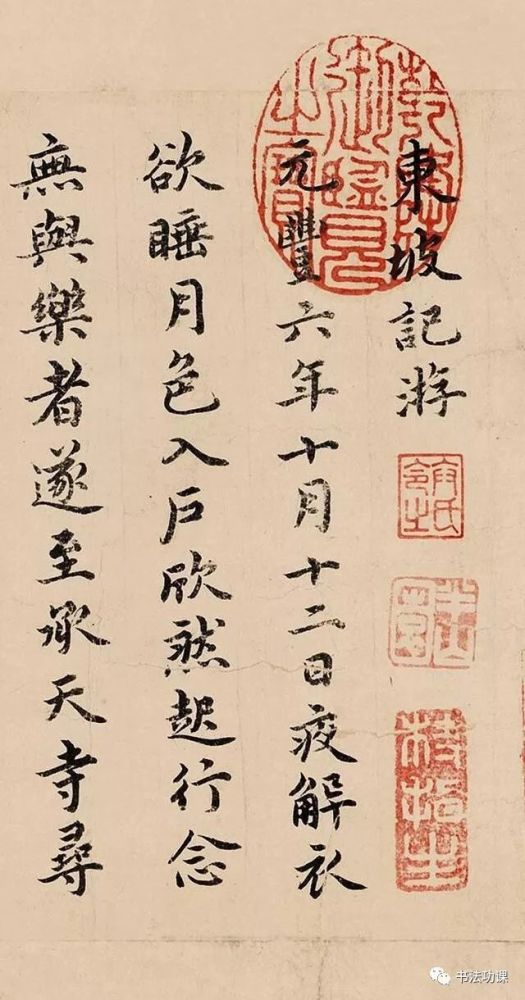 東坡記游
元豐六年十月十二日夜解衣
欲睡月色入户欣然起行念
無與樂者遂至承天寺尋
书法功课